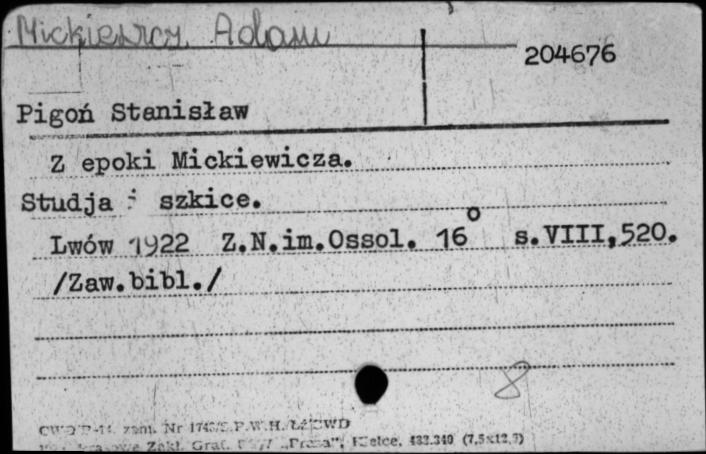 Mickiewicz Adam
204676
Pigoń Stanisław
Z epoki Mickiewicza.
Studja i szkice.
Lwów 1922 Z.N.im.Ossol. 16° s.VIII,520.
/Zaw.bibl./
8
zam. Nr
Zakł. Graf. „Prasa", Kielce. 433.340 (7,5x12,7)